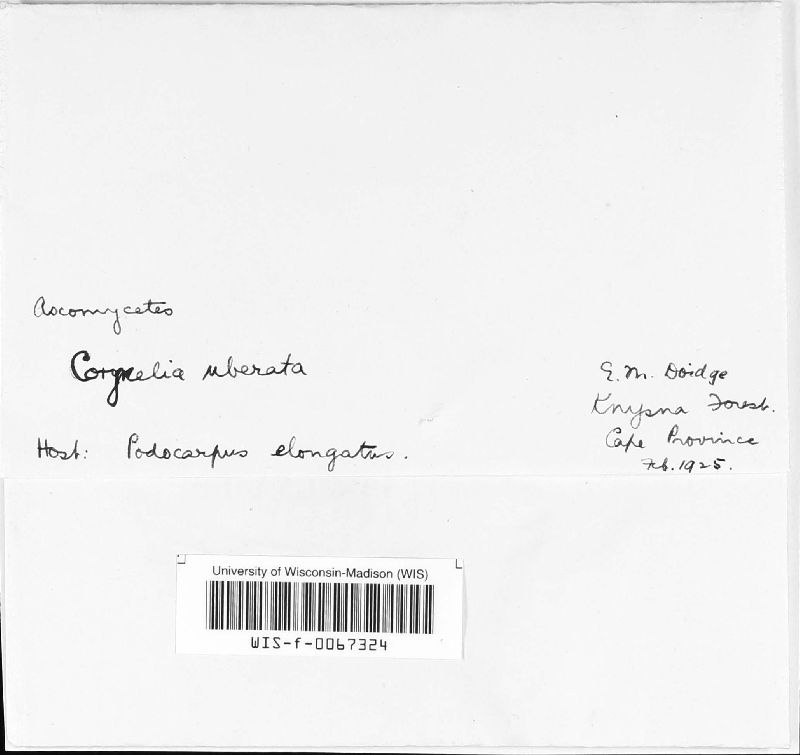 Ascomycetes
Corynelia uberata
Host: Podocarpus elongatus.
E. M. Doidge
Knysna Forest.
Cape Province
Feb. 1925.
University of Wisconsin-Madison (WIS)
WIS-f-0067324